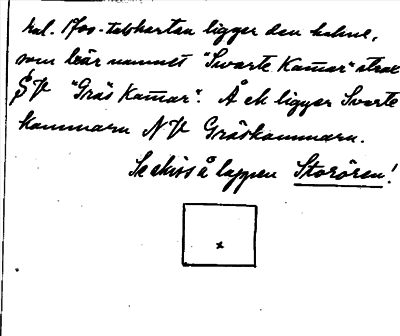 kal. 1700-talskartan ligger den holme,
som bär namnet "Svarte Kamar" strax
SV "Gräs Kamar". Å ek ligger Svarte
kammarn NV Gräskammarn.
Se skiss å lappen Storören!